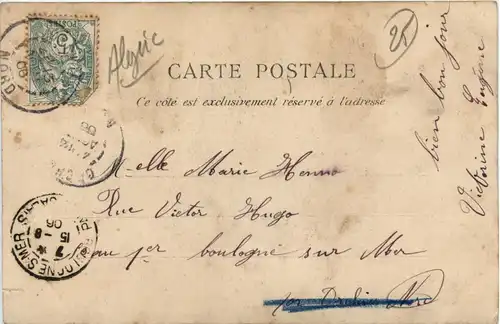 Algérie
25
CARTE POSTALE
Ce côté est exclusivement réservé à l'adresse
Melle Marie Henno
Rue Victor Hugo
au 1er boulogne sur Mer
bien bon jour
Victorine Eugène
ORAN
BOULOGNE-S-MER
15
06